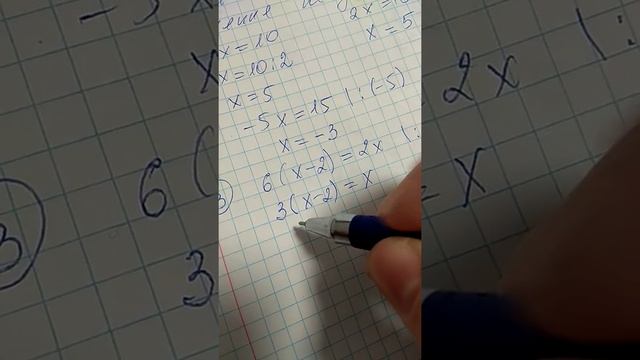 2x = 10
x = 10 : 2
x = 5
x = 5
-5x = 15 | : (-5)
x = -3
3) 6(x-2) = 2x | :
3(x-2) = x